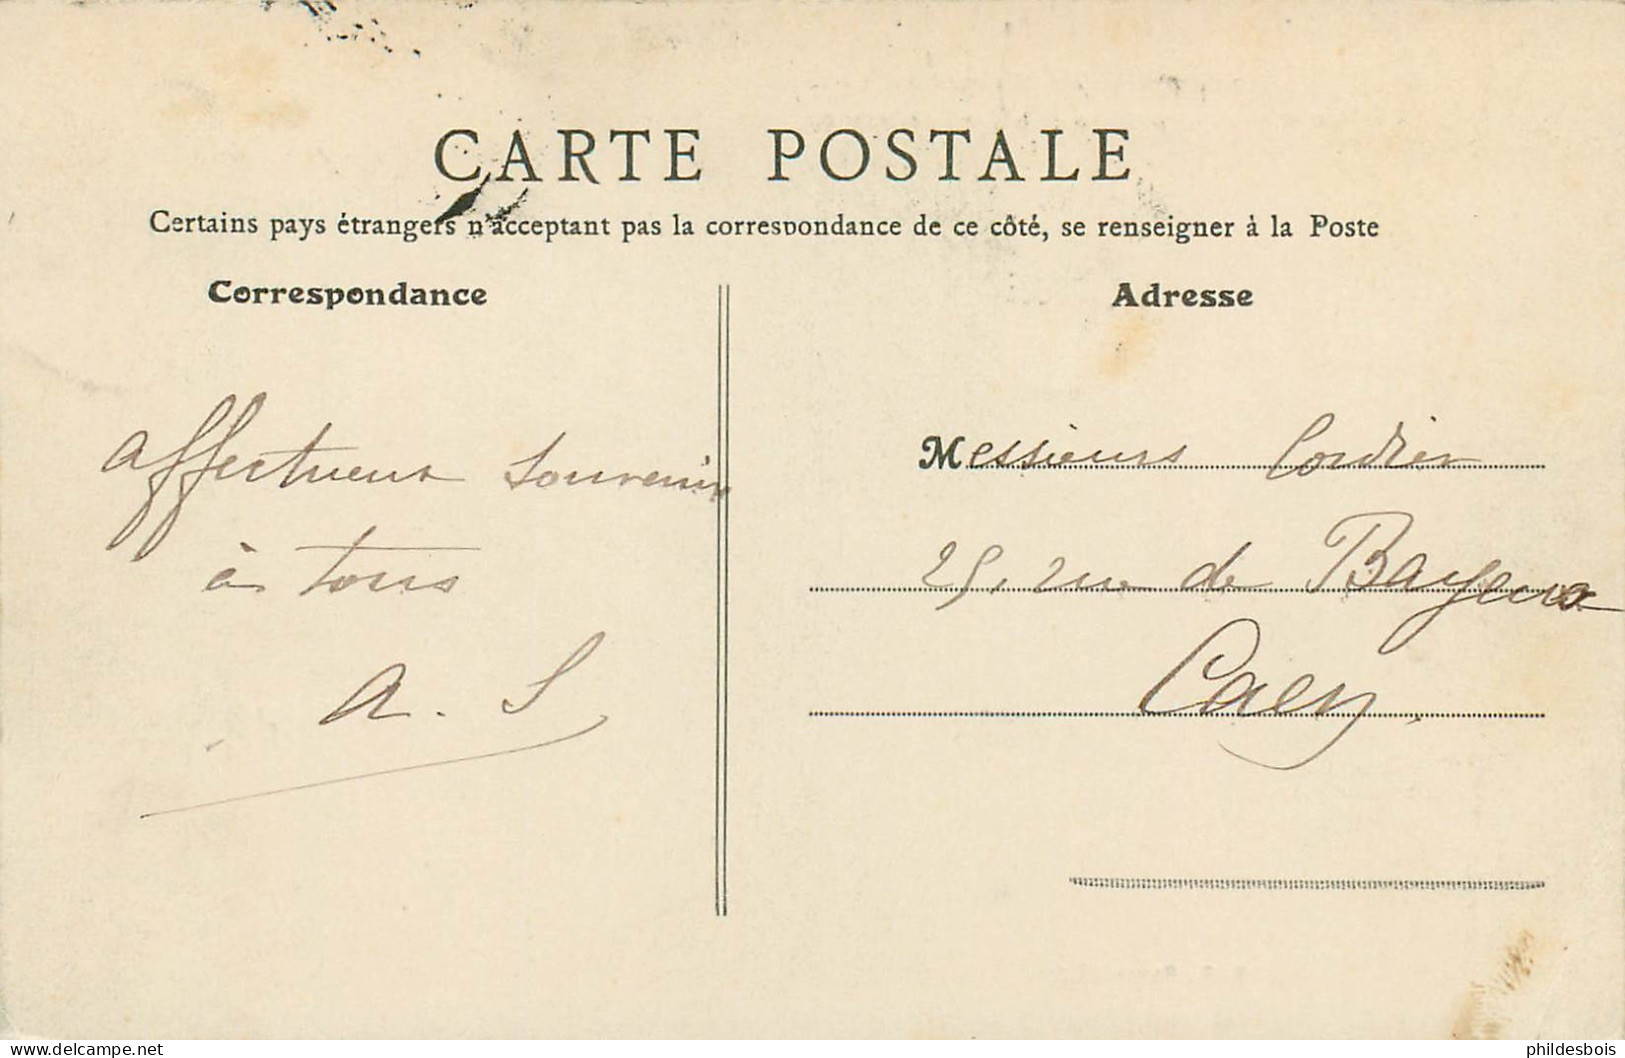 CARTE POSTALE
Certains pays étrangers n'acceptant pas la correspondance de ce côté, se renseigner à la Poste
Correspondance
Adresse
affectueux souvenir
à tous
A. S
Messieurs Cordier
25, rue de Bayeux
Caen
phildesbois
www.delcampe.net